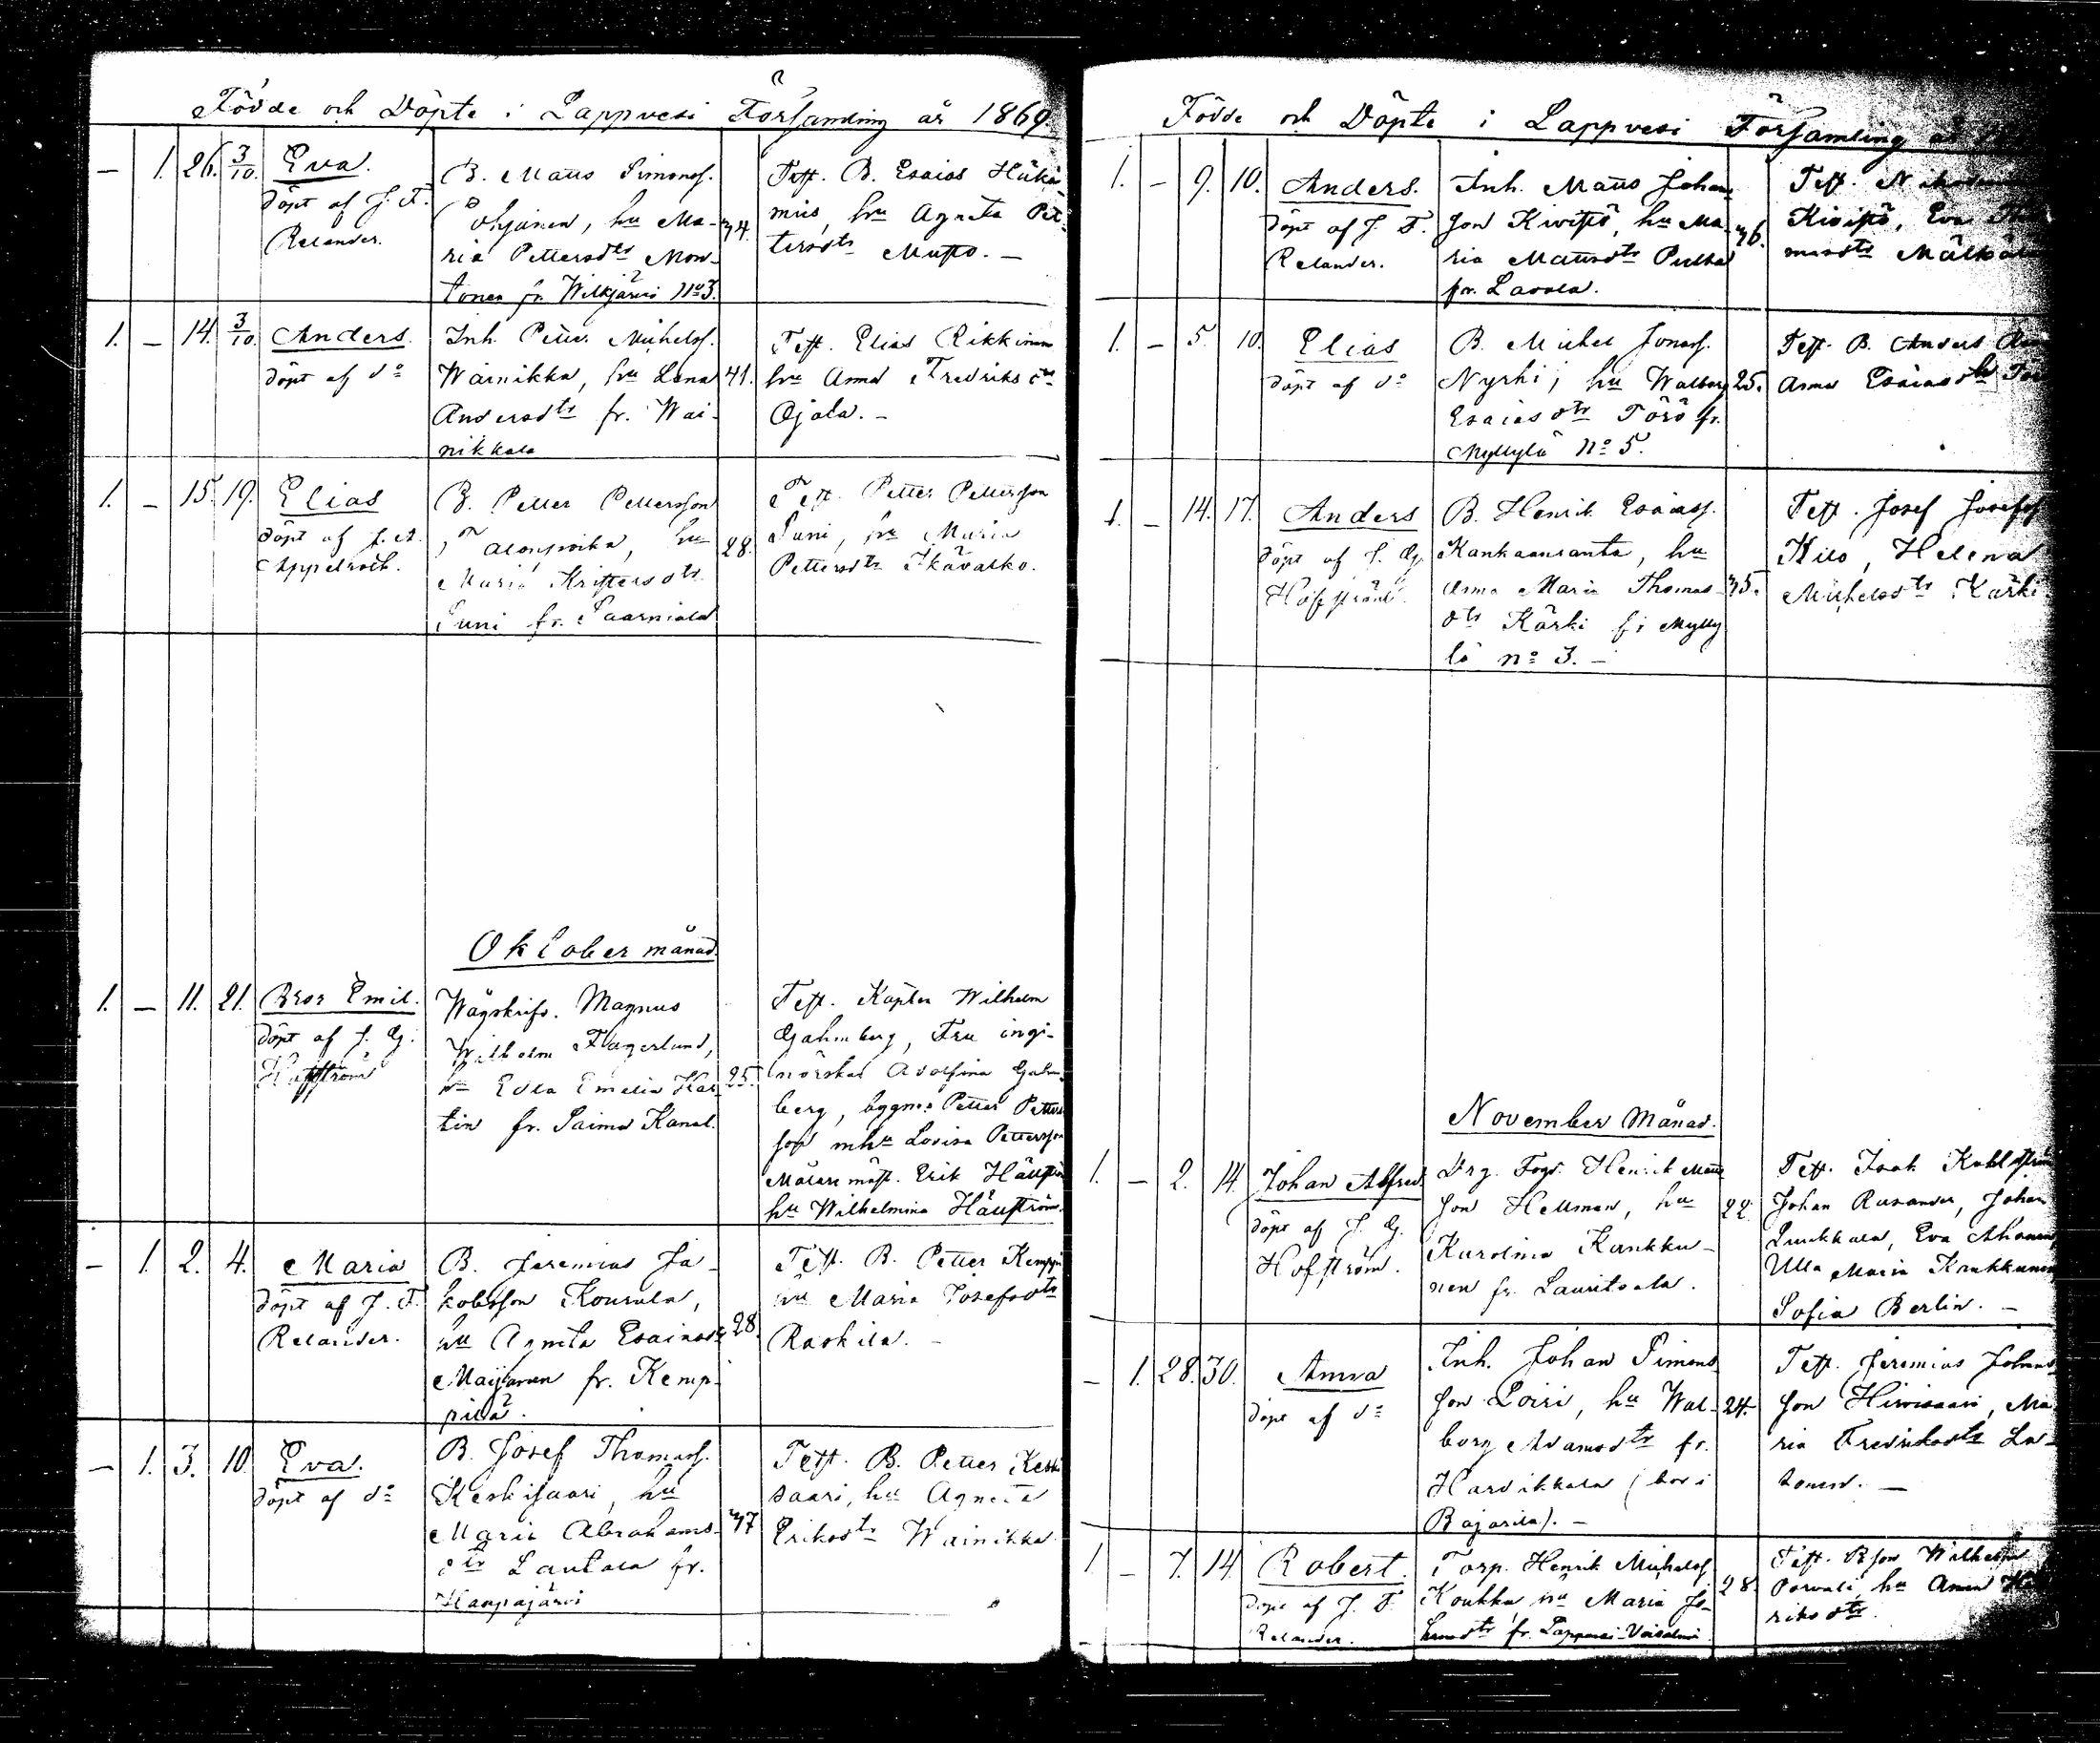 Födde och Döpte i Lappvesi Församling år 1869.
– 1. 26. 3/10. Eva.
döpt af J. F.
Relander.
B. Matts Simonss.
Pohjanen, hu Ma-
ria Pettersdtr Mon-
tonen fr. Wilkjärvi No 3.
34.
Test. B. Esaias
hru Agneta Pet-
tersdtr Musto. –
1. – 14. 3/10. Anders.
döpt af do
Inh. Petter Michelss.
Wainikka, hru Lena
Andersdtr fr. Wai-
nikkala
41.
Test. Elias Rikkinen
hru Anna Fredriksdtr
Ojala. –
1. – 15. 19. Elias
döpt af J. A.
Appelroth.
B. Petter Pettersson
hru
Maria Kristersdtr
Suni fr.
28.
Test. Petter Pettersson
Suni, hru Maria
Pettersdtr Ikävalko.
Oktober månad.
1. – 11. 21. Bror Emil.
döpt af J. G.
Hofström
Wågskrifv. Magnus
Wilhelm Fagerlund,
hu Edla Emelia
fr. Saima Kanal.
25.
Test. Kapten Wilhelm
Gahmberg, Fru ingi-
niörskan Adolfina Gahm-
berg, byggm. Petter Petters
son mhu Lovisa Pettersson
Målare mäst. Erik
hu Wilhelmina
– 1. 2. 4. Maria
döpt af J. F.
Relander.
B. Jeremias Ja-
kobsson Kourula,
hu Agneta Esaiasdtr
fr. Kemp-
pilä.
28.
Test. B. Petter
hu Maria Josefsdtr
Raskila. –
– 1. 3. 10. Eva.
döpt af do
B. Josef Thomass.
Keskisaari, hu
Maria Abrahams-
dtr Lantala fr.
Haapajärvi
37
Test. B. Petter Keski
saari, hu Agneta
Eriksdtr Wainikka.
Födde och Döpte i Lappvesi Församling år
1. – 9. 10. Anders.
döpt af J. F.
Relander.
Inh. Matts Johans
son Kivistö, hu Ma-
ria Mattsdtr
fr. Lavola.
36.
Test.
Kivistö, Eva
1. – 5. 10. Elias
döpt af do
B. Michel Jonass.
Nyrhi, hu Walborg
Esaiasdtr Törö fr.
Myllylä No 5.
25.
Test. B. Anders
Anna Esaiasdtr
1. – 14. 17. Anders
döpt af J. G.
Hofström.
B. Henrik Esaiass.
Kankaanranta, hu
Anna Maria Thomas-
dtr Kärki fr Mylly
lä no 3. –
35.
Test. Josef Josefss
Kilo, Helena
Michelsdtr Kärki
November Månad.
1. – 2. 14. Johan Alfred.
döpt af J. G.
Hofström.
Drg. Fogd. Henrik Matts
son Hellman, hu
Karolina Kaukku-
nen fr. Lauritsala.
22.
Test. Isak
Johan Rusander, Johan
Luukkala, Eva Ahonen
Ulla Maria Kaukkunen
Sofia Berlin. –
– 1. 28. 30. Anna
döpt af do
Inh. Johan Simons
son Loiri, hu Wal-
borg Adamsdtr fr.
Hardikkala (bor i
Rajarila). –
24.
Test. Jeremias Johans
son Hirvisaari, Ma
ria Fredriksdtr La-
1. – 7. 14. Robert.
döpt af J. F.
Relander.
Torp. Henrik Michelss
Koukku, hu Maria Jo-
hansdtr fr. Lappvesi
28.
Test. Bson Wilhelm
Porvali hu Anna
riksdtr.